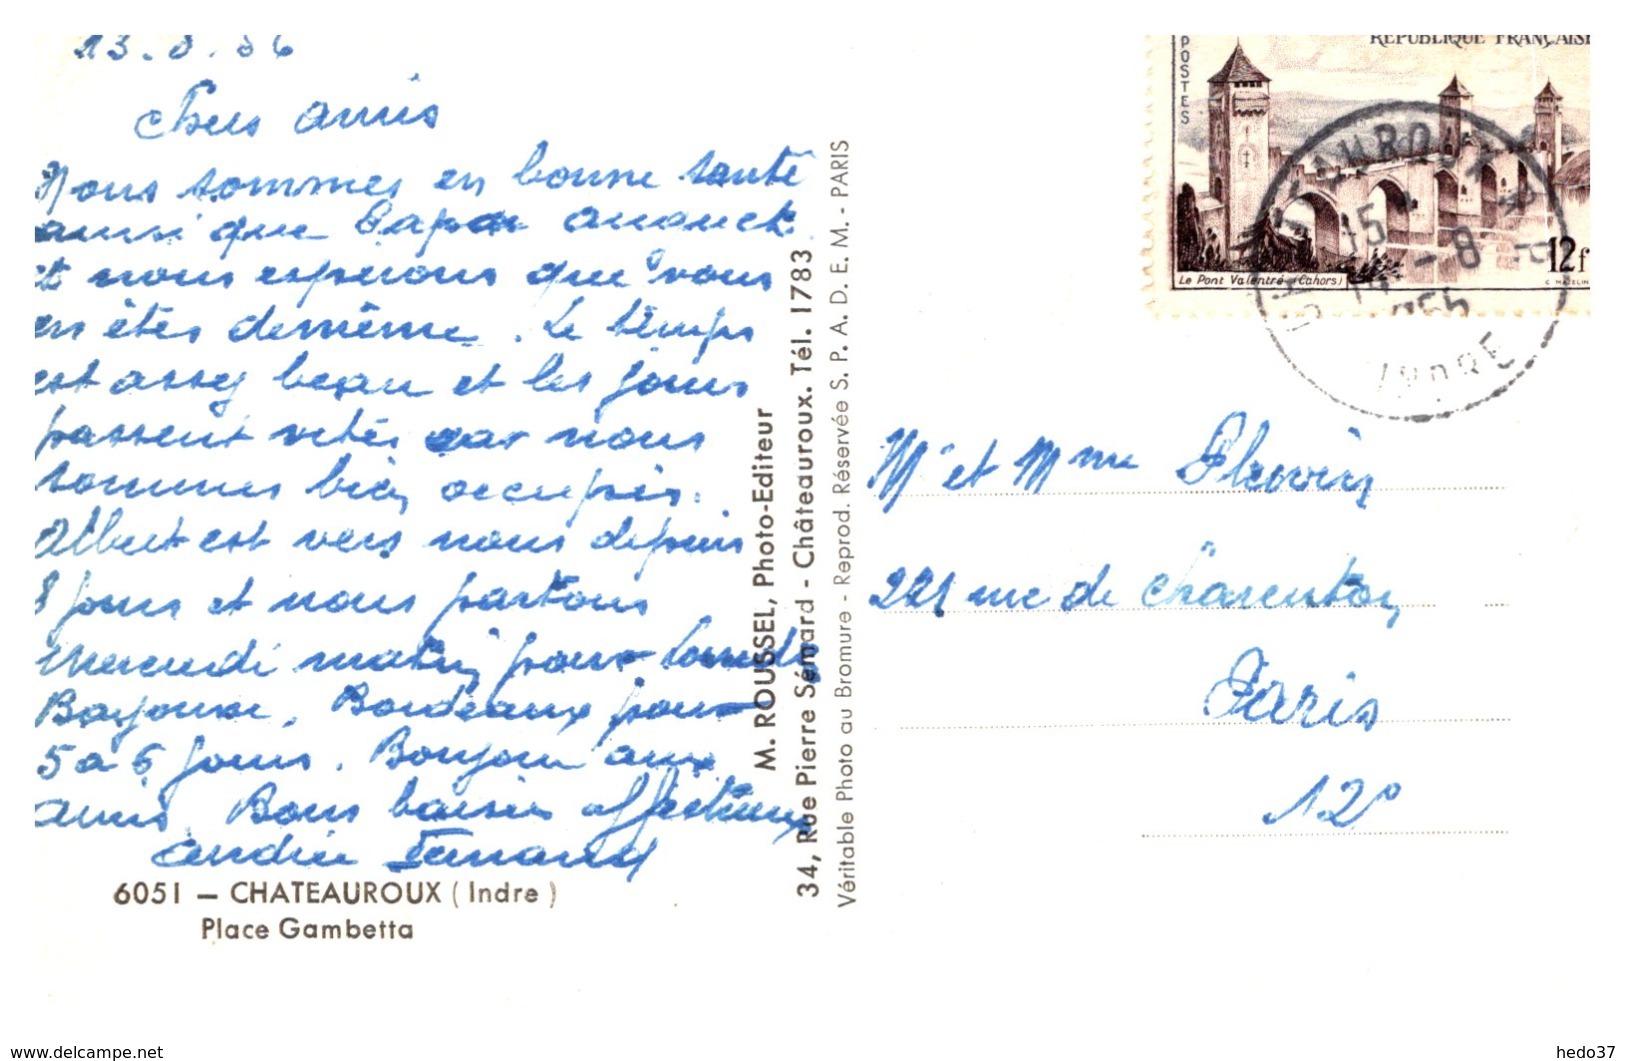 13.8.56
Chers amis
Nous sommes en bonne santé
ainsi que Papa
et nous espérons que vous
en êtes de même. Le temps
est assez beau et les jours
passent vites car nous
sommes bien occupés.
Albert est vers nous depuis
8 jours et nous partons
Mercredi matin pour
Bayonne, Bordeaux pour
5 à 6 jours. Bonjour aux
amis. Bons baisers affectueux
Andrée Fernand
6051 — CHATEAUROUX (Indre)
Place Gambetta
M. ROUSSEL, Photo-Editeur
34, Rue Pierre Sémard - Châteauroux. Tél. 1783
Véritable Photo au Bromure - Reprod. Réservée S. P. A. D. E. M. - PARIS
POSTES
REPUBLIQUE FRANÇAISE
Le Pont Valentré (Cahors)
12f
C. MAZELIN
CHATEAUROUX RP
15
14 - 8
INDRE
Mr et Mme
221 rue de Charenton
Paris
12e
www.delcampe.net
hedo37